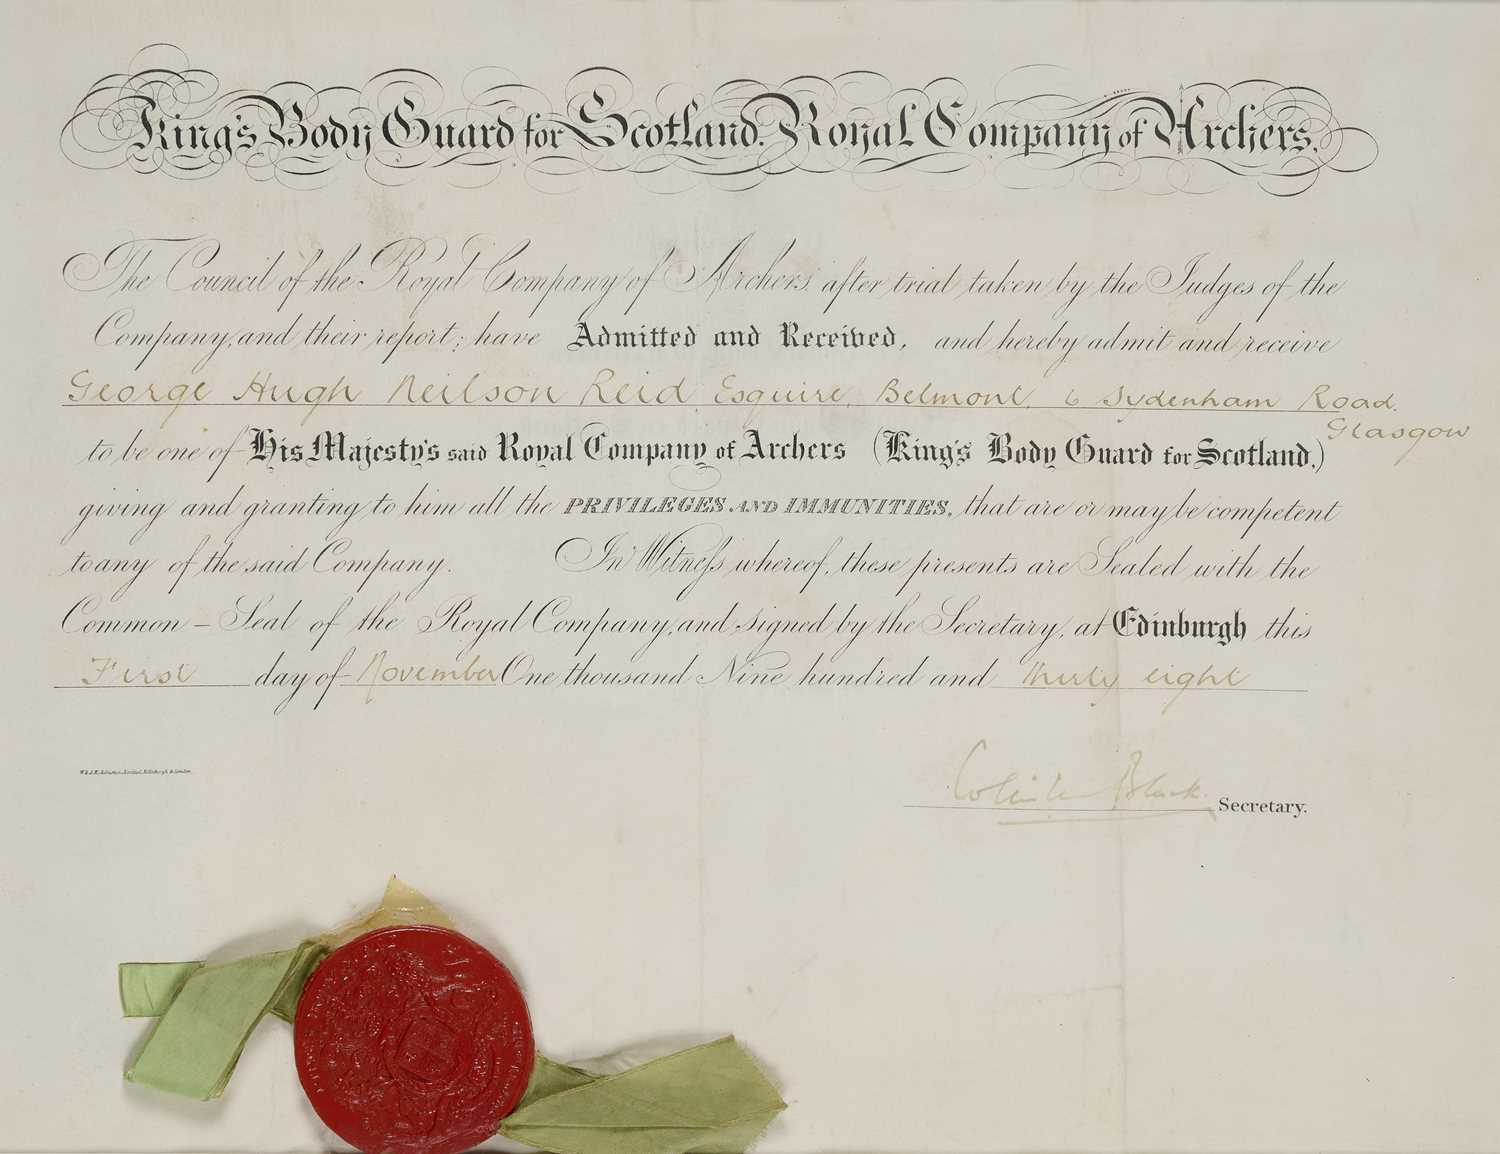 King's Body Guard for Scotland. Royal Company of Archers.
The Council of the Royal Company of Archers, after trial taken by the Judges of the
Company, and their report; have Admitted and Received, and hereby admit and receive
George Hugh Neilson Reid Esquire, Belmont, 6 Sydenham Road,
Glasgow
to be one of His Majesty's said Royal Company of Archers (King's Body Guard for Scotland,)
giving and granting to him all the PRIVILEGES AND IMMUNITIES, that are or may be competent
to any of the said Company. In Witness whereof, these presents are Sealed with the
Common-Seal of the Royal Company, and signed by the Secretary, at Edinburgh this
First day of November One thousand Nine hundred and thirty eight
Black Secretary.